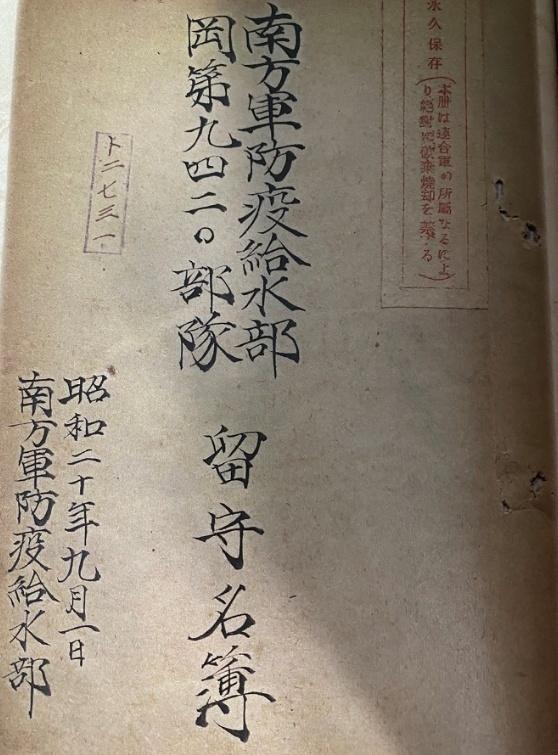 永久保存
(本冊は連合軍の所属なるによ
り絶對に破棄焼却を禁ずる)
南方軍防疫給水部
岡第九四二〇部隊
留守名簿
ト二七三一
昭和二十年九月一日
南方軍防疫給水部